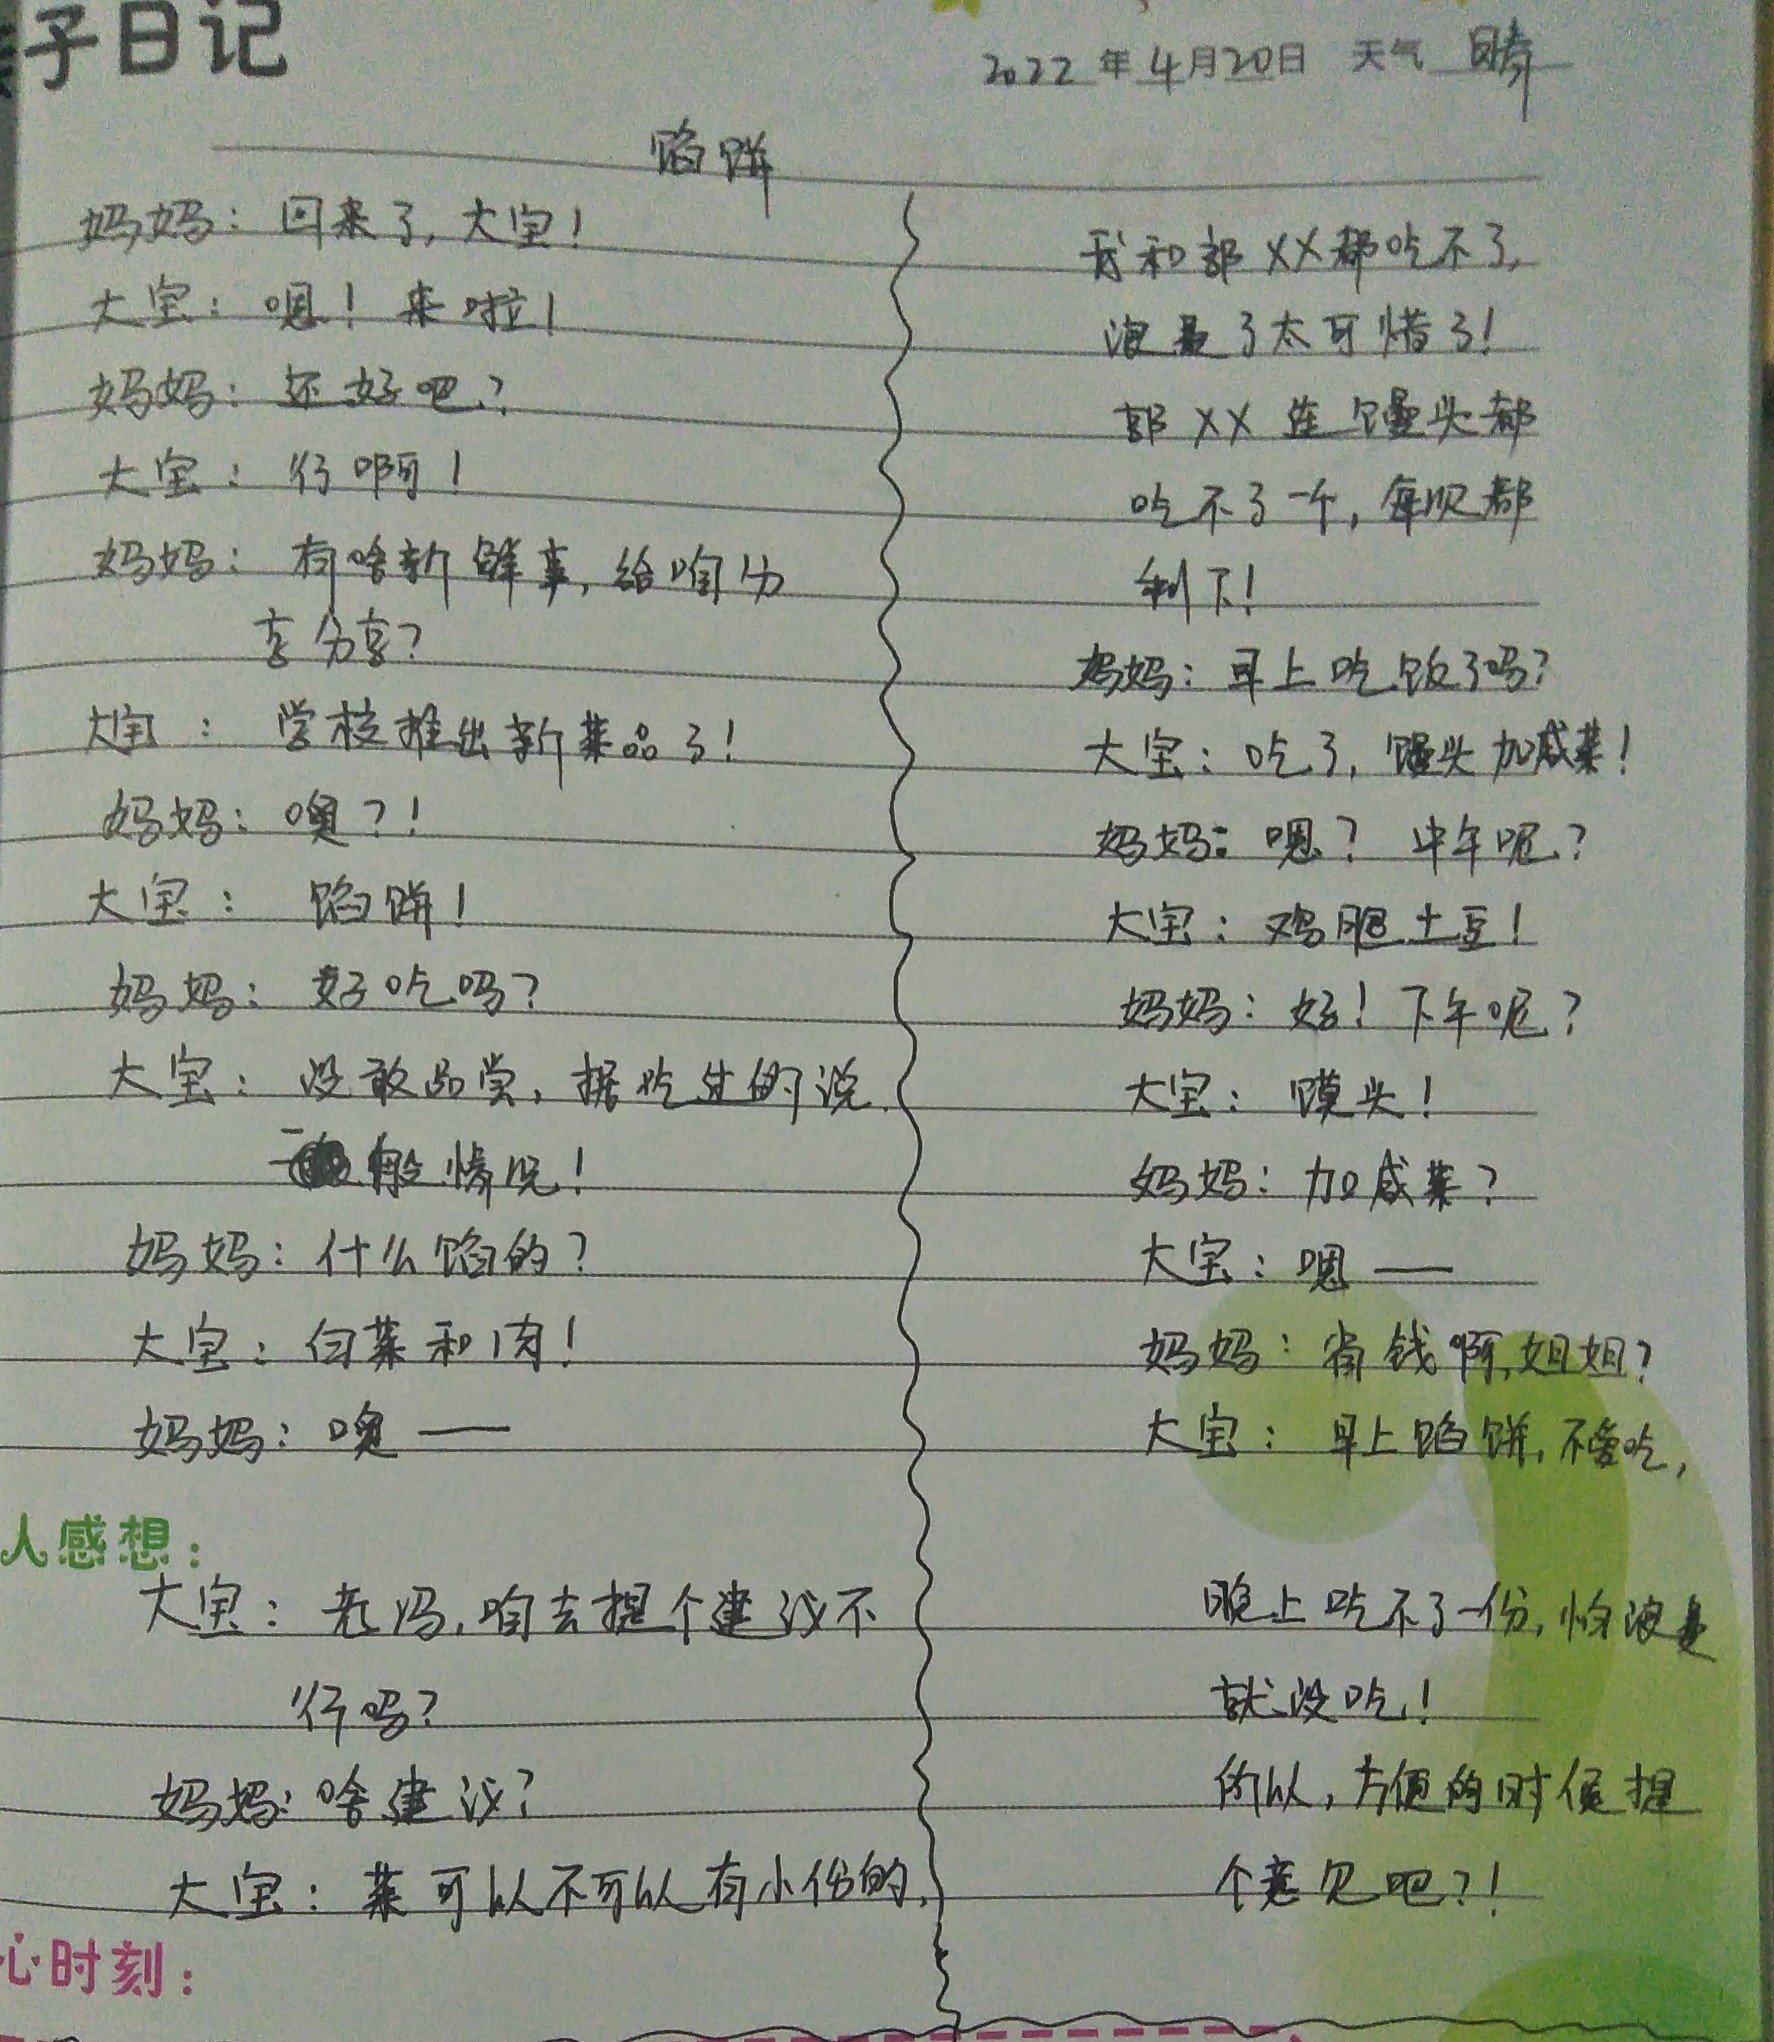 子日记
2022年4月20日 天气 晴
馅饼
妈妈：回来了，大宝！
大宝：嗯！来啦！
妈妈：还好吧？
大宝：行啊！
妈妈：有啥新鲜事，给咱分
享分享？
大宝：学校推出新菜品了！
妈妈：噢？！
大宝：馅饼！
妈妈：好吃吗？
大宝：没敢品尝，据吃过的说
一般情况！
妈妈：什么馅的？
大宝：白菜和肉！
妈妈：噢——
人感想：
大宝：老妈，咱去提个建议不
行吗？
妈妈：啥建议？
大宝：菜可以不可以有小份的，
心时刻：
我和郭XX都吃不了，
浪费了太可惜了！
郭XX连馒头都
吃不了一个，每顿都
剩下！
妈妈：早上吃饭了吗？
大宝：吃了，馒头加咸菜！
妈妈：嗯？中午呢？
大宝：鸡腿土豆！
妈妈：好！下午呢？
大宝：馍头！
妈妈：加咸菜？
大宝：嗯——
妈妈：省钱啊，姐姐？
大宝：早上馅饼，不爱吃，
晚上吃不了一份，怕浪费
就没吃！
所以，方便的时候提
个意见吧？！